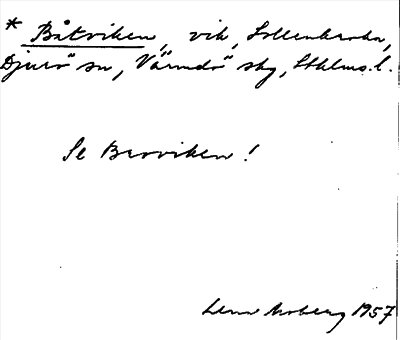 * Båtviken, vik, Sollenkroka,
Djurö sn, Värmdö skg, Sthlms l.
Se Braviken!
Lena Moberg 1957